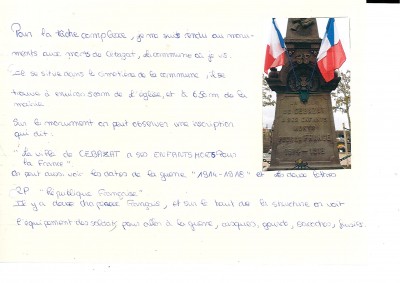 Pour la tâche complexe, je me suis rendu au monu-
ments aux morts de Cébazat, la commune où je vis.
Il se situe dans le cimetière de la commune, il se
trouve à environ 500m de l'église, et à 650m de la
mairie.
Sur le monument on peut observer une inscription
qui dit:
"La ville de CEBAZAT a ses ENFANTS MORTS Pour
la France"
on peut aussi voir les dates de la guerre "1914-1918" et les deux lettres
RF "République Française"
Il y a deux drapeaux Français, et sur le haut de la structure on voit
l'équipement des soldats pour aller à la guerre, casques, gourde, sacoches, fusils.
DE CEBAZAT
A SES ENFANTS
MORTS
POUR LA FRANCE